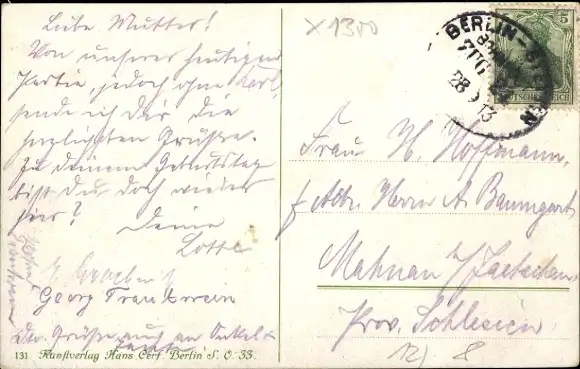 Liebe Mutter!
Von unserer heutigen
Partie, jedoch ohne Karl,
sende ich dir die
herzlichsten Grüße.
Zu deinem Geburtstag
bist Du doch wieder
hier?
Deine
Lotte
Georg Frankwein
Grüße auch an Onkel
131 Kunstverlag Hans Cerf. Berlin S. O. 33.
X1300
BERLIN-
28.9.13
5
DEUTSCHES REICH
Frau H. Hoffmann,
f. Adr. Herrn A. Baumgart
Prov. Schlesien.
12/ 8